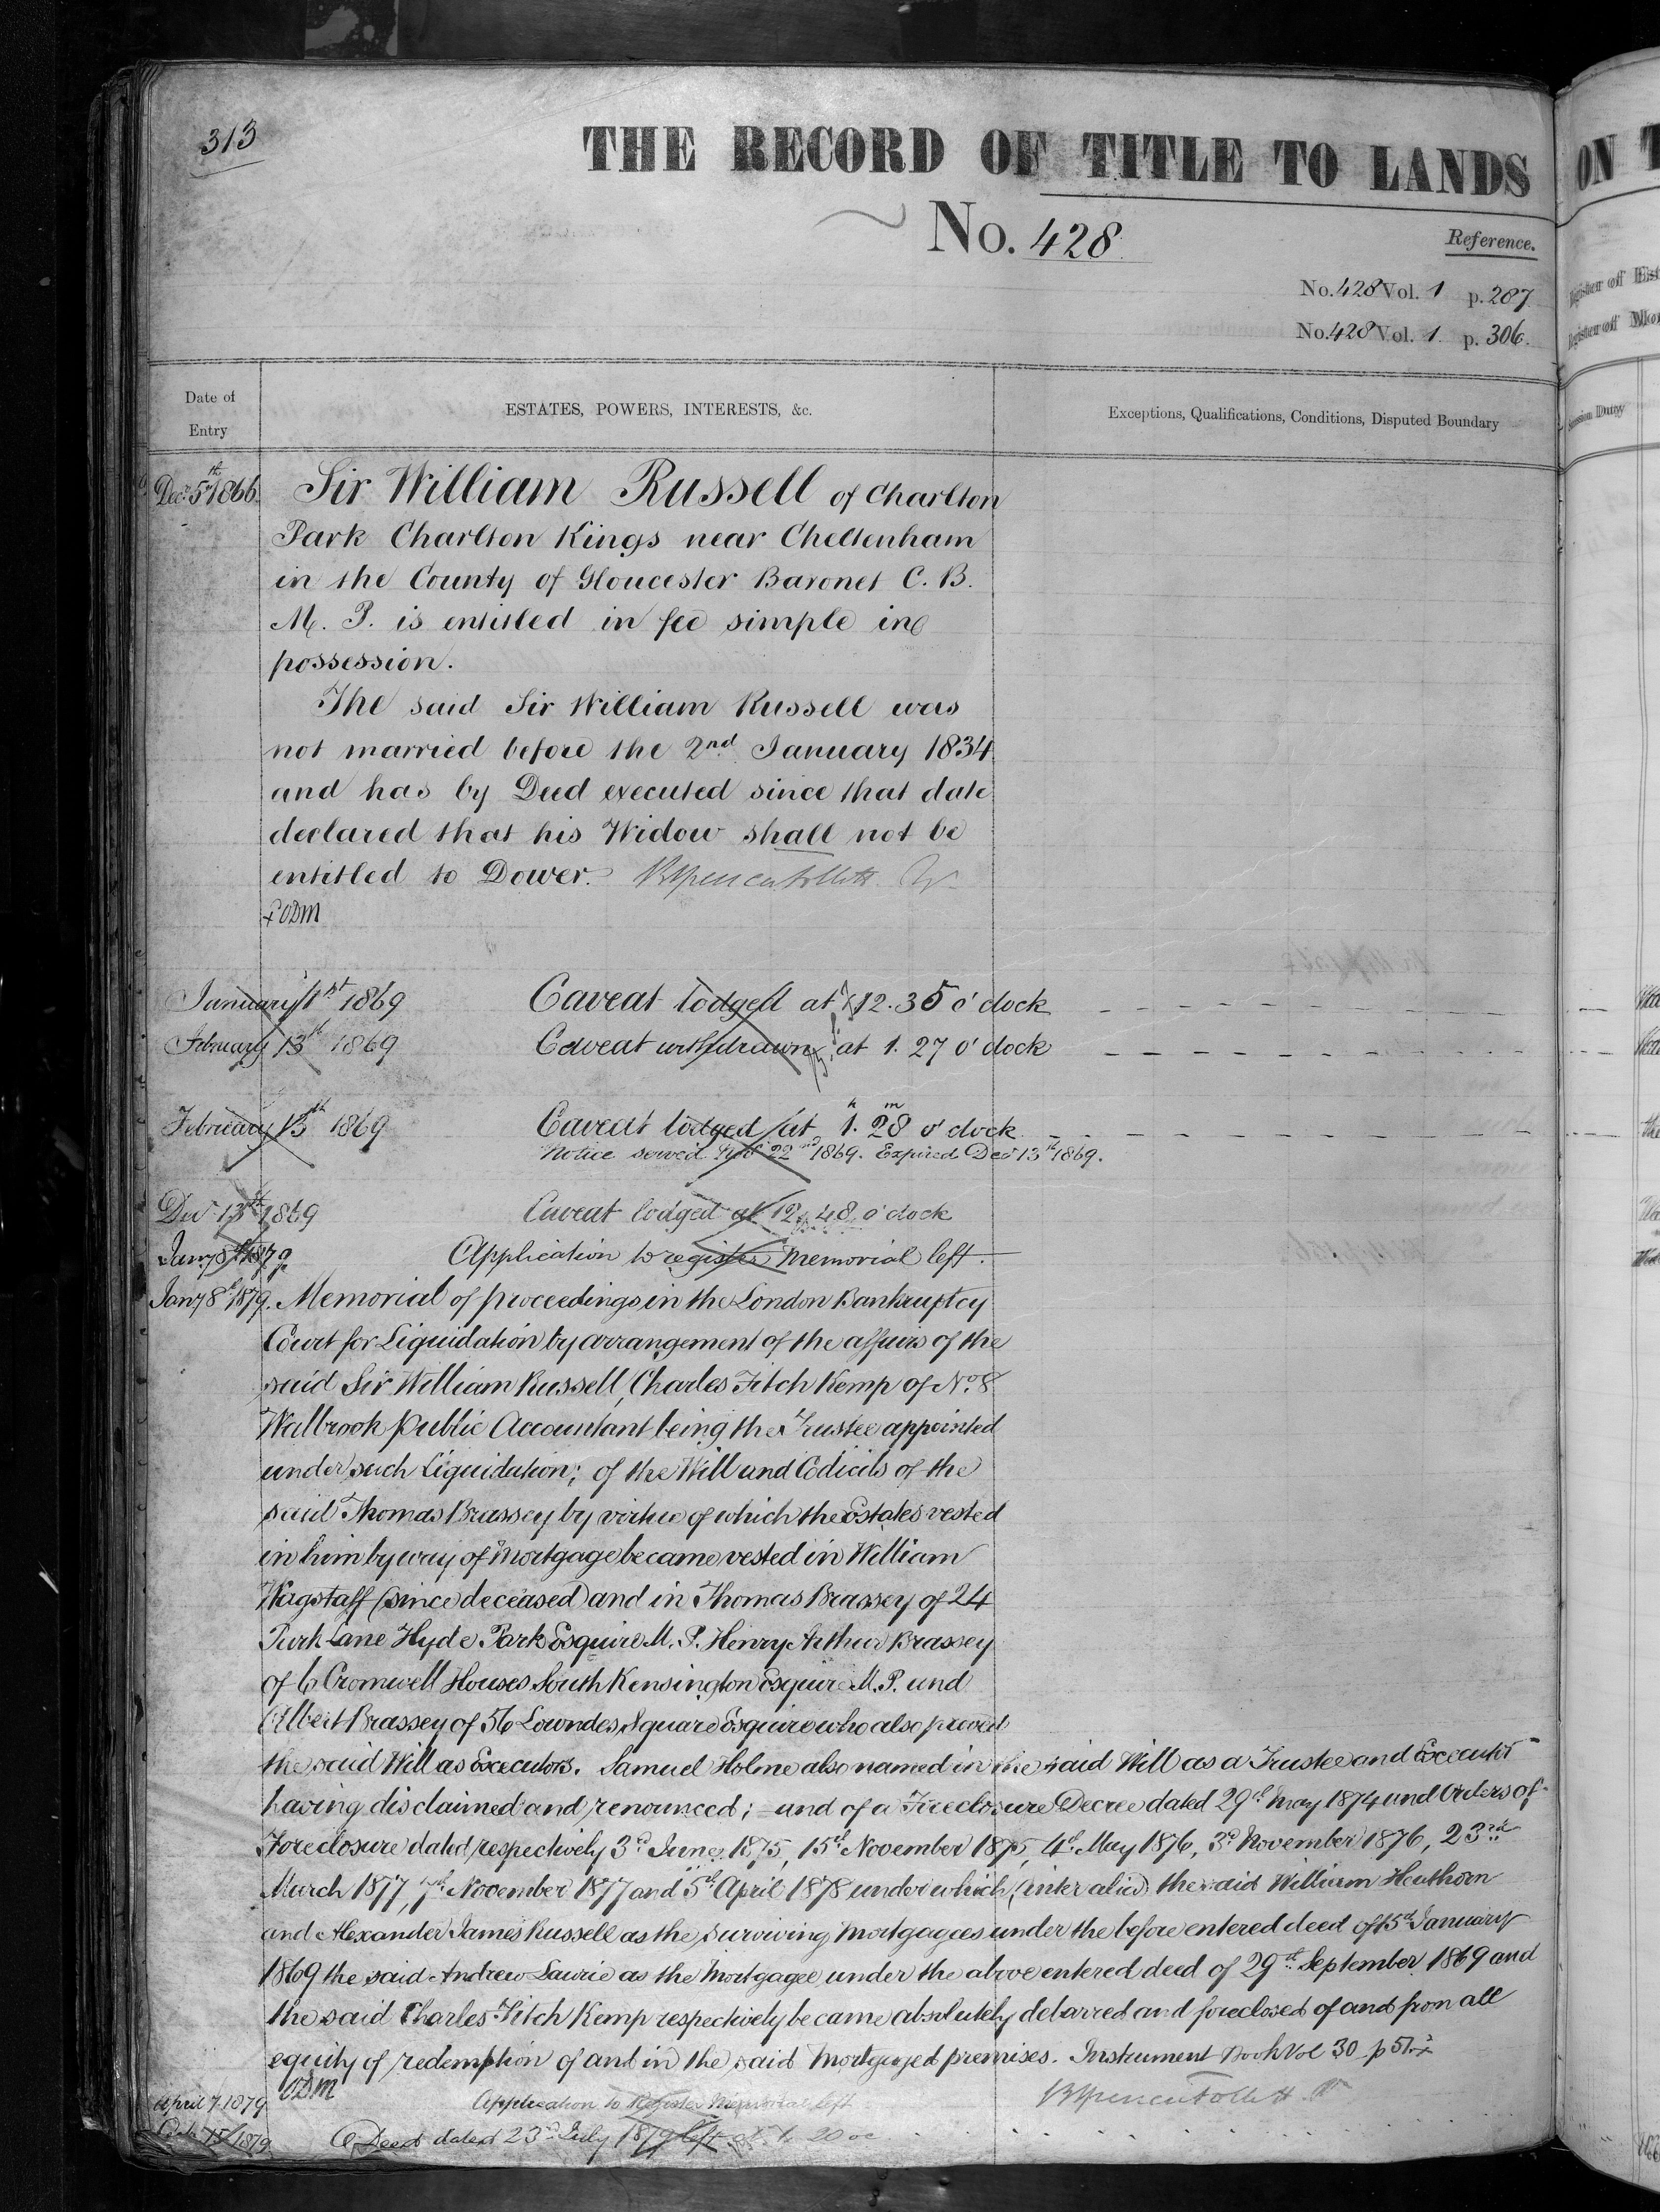 313
THE RECORD OF TITLE TO LANDS
No. 428
Reference.
No. 428 Vol. 1 p. 287
No. 428 Vol. 1. p. 306.
Date of Entry
ESTATES, POWERS, INTERESTS, &c.
Exceptions, Qualifications, Conditions, Disputed Boundary
Decr. 5th 1866. Sir William Russell of Charlton
Park Charlton Kings near Cheltenham
in the County of Gloucester Baronet C. B.
M. P. is entitled in fee simple in
possession.
The said Sir William Russell was
not married before the 2nd January 1834
and has by Deed executed since that date
declared that his Widow shall not be
entitled to Dower.
ODM
January 1st 1869 Caveat lodged at 12.35 o'clock
February 13th 1869 Caveat withdrawn at 1. 27 o'clock
February 13th 1869 Caveat lodged at 1h. 28m o'clock
Notice served 22nd 1869. Expired Decr 13th 1869.
Decr 13th 1869 Caveat lodged at 12.48 o'clock
Jany 8th 1879 Application to register Memorial left.
Jany 8th 1879. Memorial of proceedings in the London Bankruptcy
Court for Liquidation by arrangement of the affairs of the
said Sir William Russell, Charles Fitch Kemp of No. 8
Walbrook Public Accountant being the Trustee appointed
under such Liquidation; of the Will and Codicils of the
said Thomas Brassey by virtue of which the Estates vested
in him by way of Mortgage became vested in William
Wagstaff (since deceased) and in Thomas Brassey of 24
Park Lane Hyde Park Esquire M. P. Henry Arthur Brassey
of 6 Cromwell Houses South Kensington Esquire M. P. and
Albert Brassey of 56 Lowndes Square Esquire who also proved
the said Will as Executors. Samuel Holme also named in the said Will as a Trustee and Executor
having disclaimed and renounced; and of a Foreclosure Decree dated 29th May 1874 and Orders of
Foreclosure dated respectively 3d June 1875, 15th November 1875, 4th May 1876, 3d November 1876, 23rd
March 1877, 7th November 1877 and 5th April 1878 under which (inter alia) the said William Henthorn
and Alexander James Russell as the surviving Mortgagees under the before entered deed of January
1869 the said Andrew Lawrie as the Mortgagee under the above entered deed of 29th September 1869 and
the said Charles Fitch Kemp respectively became absolutely debarred and foreclosed of and from all
equity of redemption of and in the said Mortgaged premises. Instrument Book Vol 30 p 51
ODM
April 7 1879 Application to Register Memorial left
15 1879 A Deed dated 23rd July 1879 left at 1. 20